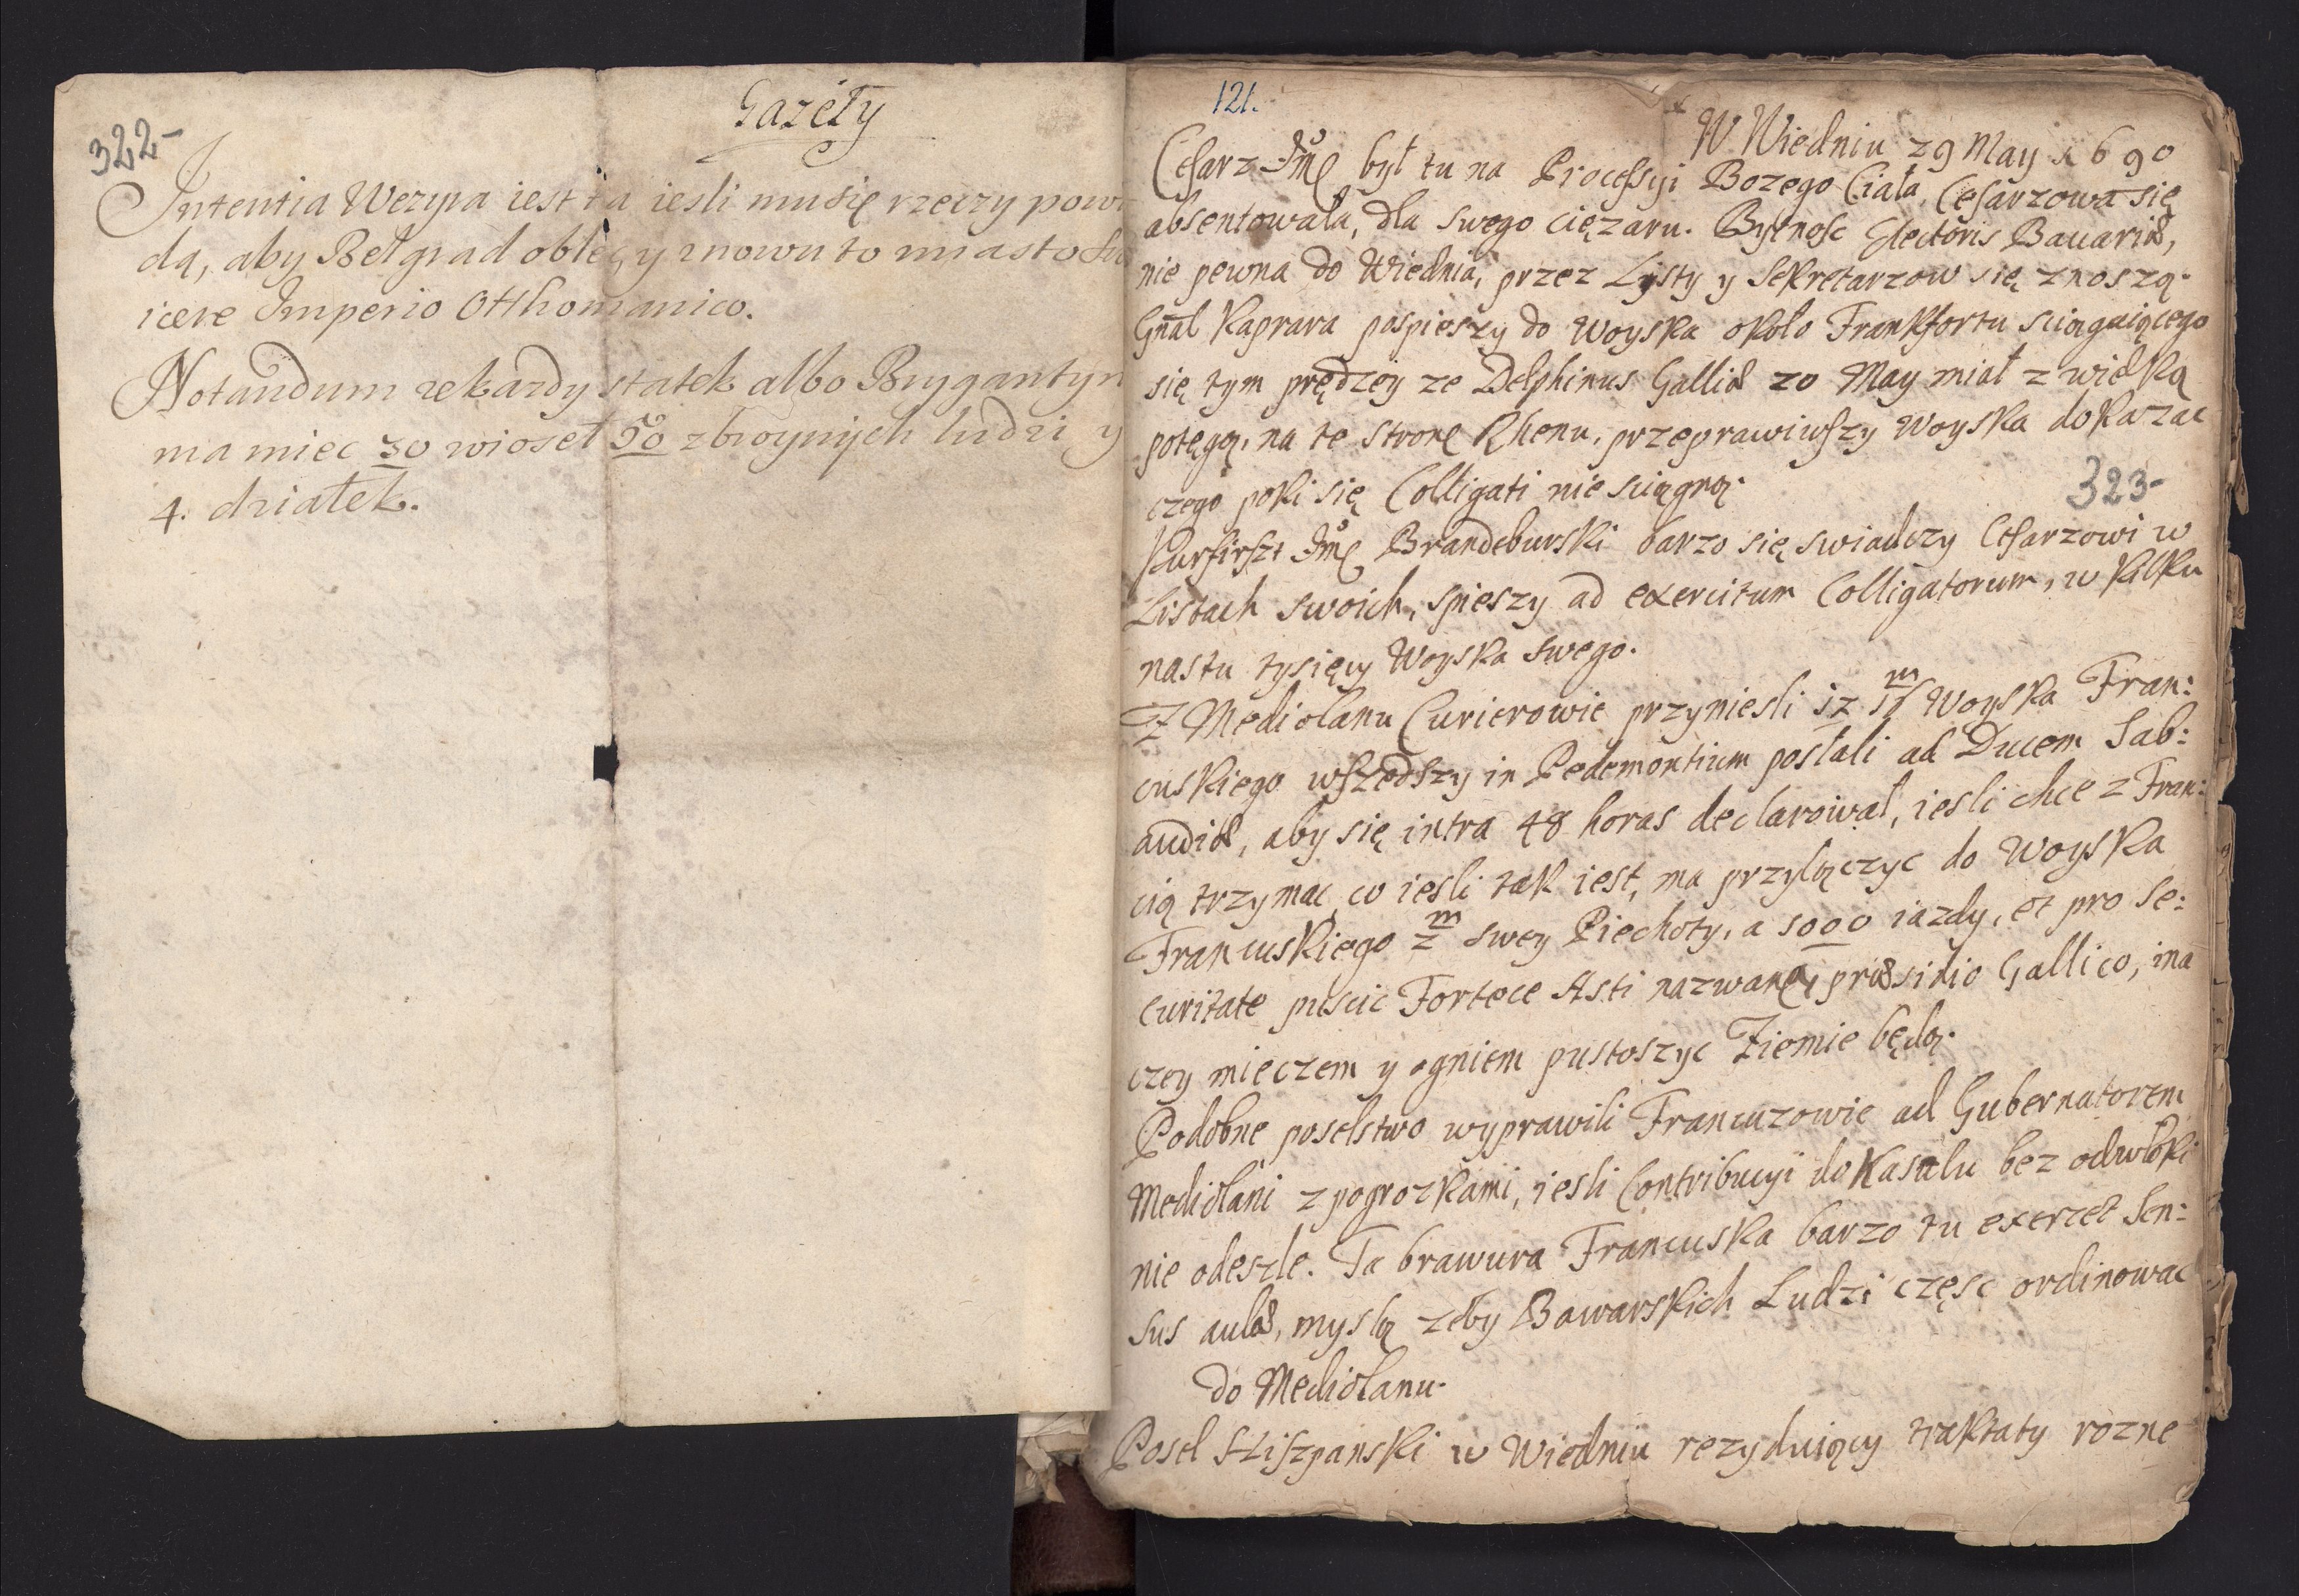 Gazéty
322-
Intentia Wezyra iest ta iesli mu się rzeczy powi
dą, aby Belgrad oblegz y znowu to miasto
icere Imperio Otthomanico.
Notandum ze kazdy statek albo Brygantyn
ma miec 30 wioseł 50 zbroynych ludzi y
4. działek.
121.
W Wiedniu 29 May 1690
Cesarz Jmę był tu na Processyi Bozego Ciała, Cesarzowa się
absentowała, dla swego cięzaru. Bytnosc Electoris Bauariæ,
nie pewna do Wiednia, przez Lysty y Sekretarzow się znoszą.
Gnal Kaprara pospieszy do Woyska około Frankfortu sciągaiącego
się tym prędzey ze Delphinus Galliæ 20 May miał z wielką
potęgą, na te stronę Rhenu, przeprawiwszy Woyska dokazac
czego poki się Colligati nie sciągną.
323-
Kurfirszt Jmę Brandeburski barzo się swiadczy Cesarzowi w
Listach swoich, spieszy ad exercitum Colligatorum, w kilku
nastu tysięcy Woyska swego.
Z Mediolanu Curierowie przyniesli iz m Woyska Fran:
cuskiego wszedszy in Pedemontium posłali ad Ducem Sab:
audiæ, aby się intra 48 horas declarował, iesli chce z Fran:
cią trzymac, co iesli tak iest, ma przyłączyc do Woyska
Francuskiego 2m swey Piechoty, a 5000 iazdy, et pro se:
curitate puscic Fortece Asti nazwaną, præsidio Gallico, ina
czey mieczem y ogniem pustoszyc Ziemie będą.
Podobne poselstwo wyprawili Francuzowie ad Gubernatorem
Mediolani z pogrozkami, iesli Contribucyi do Kasalu bez odwłoki
nie odeszle. Ta brawura Francuska barzo tu exercet Sen:
sus aulæ, myslą zeby Bawarskich Ludzi częsc ordinowac
do Mediolanu.
Poseł Hiszpanski w Wiedniu rezyduiący traktaty rozne